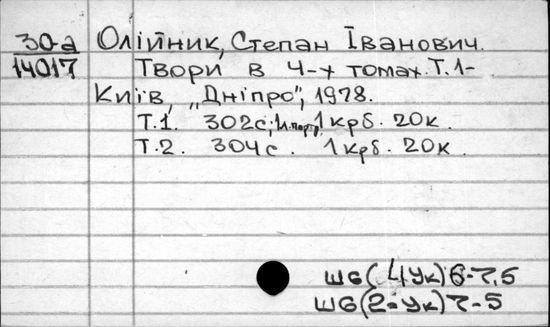 30-а Олійник, Степан Іванович.
14017 Твори в 4-х томах. Т.1-
Київ, „Дніпро", 1978.
Т.1. 302с; 1крб. 20к.
Т.2. 304с. 1крб. 20к.
Ш6(4Ук)6-7,5
Ш6(2=Ук)7-5